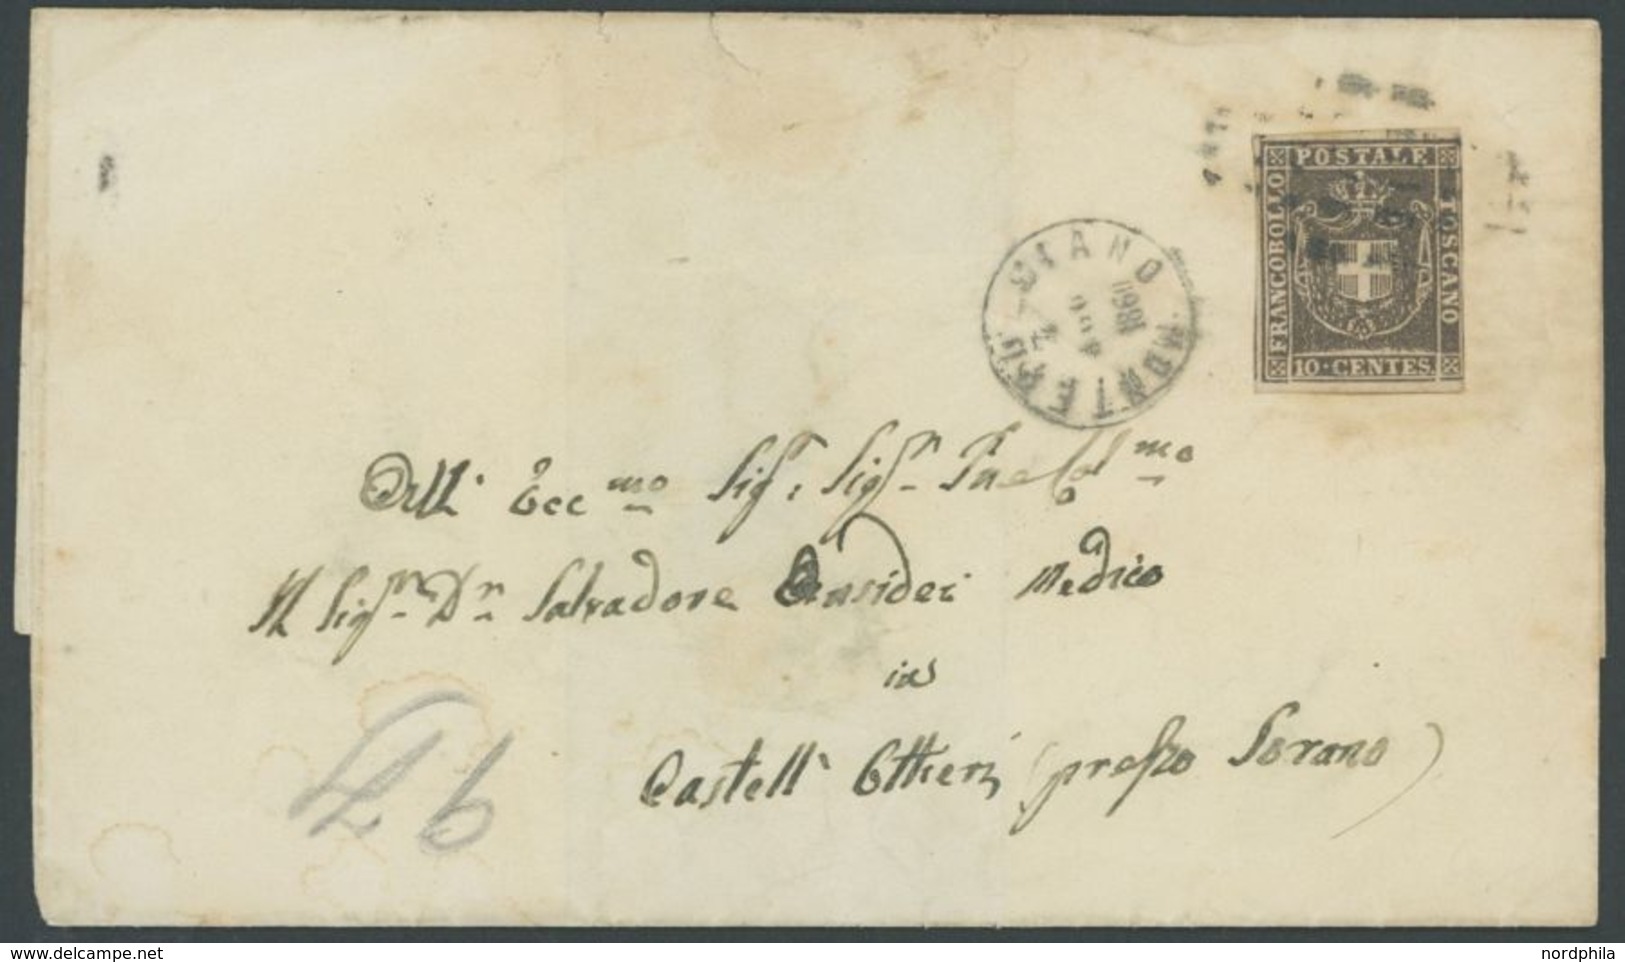 POSTALE
FRANCOBOLLO
TOSCANO
10 · CENTES.
1860
All' Ecc.mo Sigr: Sigr
Al Sigr Dr Salvadore Ansidei Medico
in
Castell' Ottieri (presso Sorano)
delcampe.net
nordphila